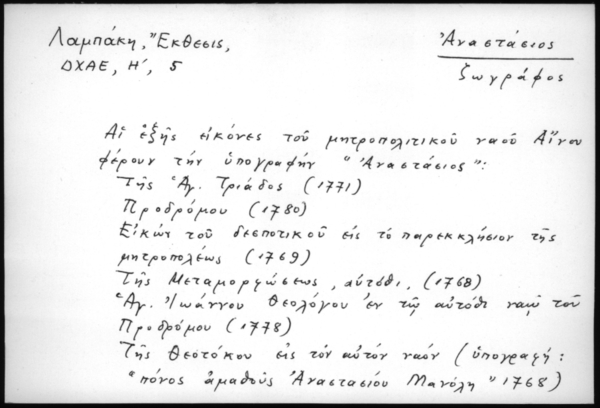 Λαμπάκη, Ἔκθεσις,
ΔΧΑΕ, Η', 5
Ἀναστάσιος
ζωγράφος
Αἱ ἑξῆς εἰκόνες τοῦ μητροπολιτικοῦ ναοῦ Αἴνου
φέρουν τὴν ὑπογραφὴν "Ἀναστάσιος":
Τῆς Ἁγ. Τριάδος (1771)
Προδρόμου (1780)
Εἰκὼν τοῦ δεσποτικοῦ εἰς τὸ παρεκκλήσιον τῆς
μητροπόλεως (1769)
Τῆς Μεταμορφώσεως, αὐτόθι, (1768)
Ἁγ. Ἰωάννου Θεολόγου ἐν τῷ αὐτόθι ναῷ τοῦ
Προδρόμου (1778)
Τῆς Θεοτόκου εἰς τὸν αὐτὸν ναόν (ὑπογραφή:
"πόνος ἀμαθοῦς Ἀναστασίου Μανόλη" 1768)